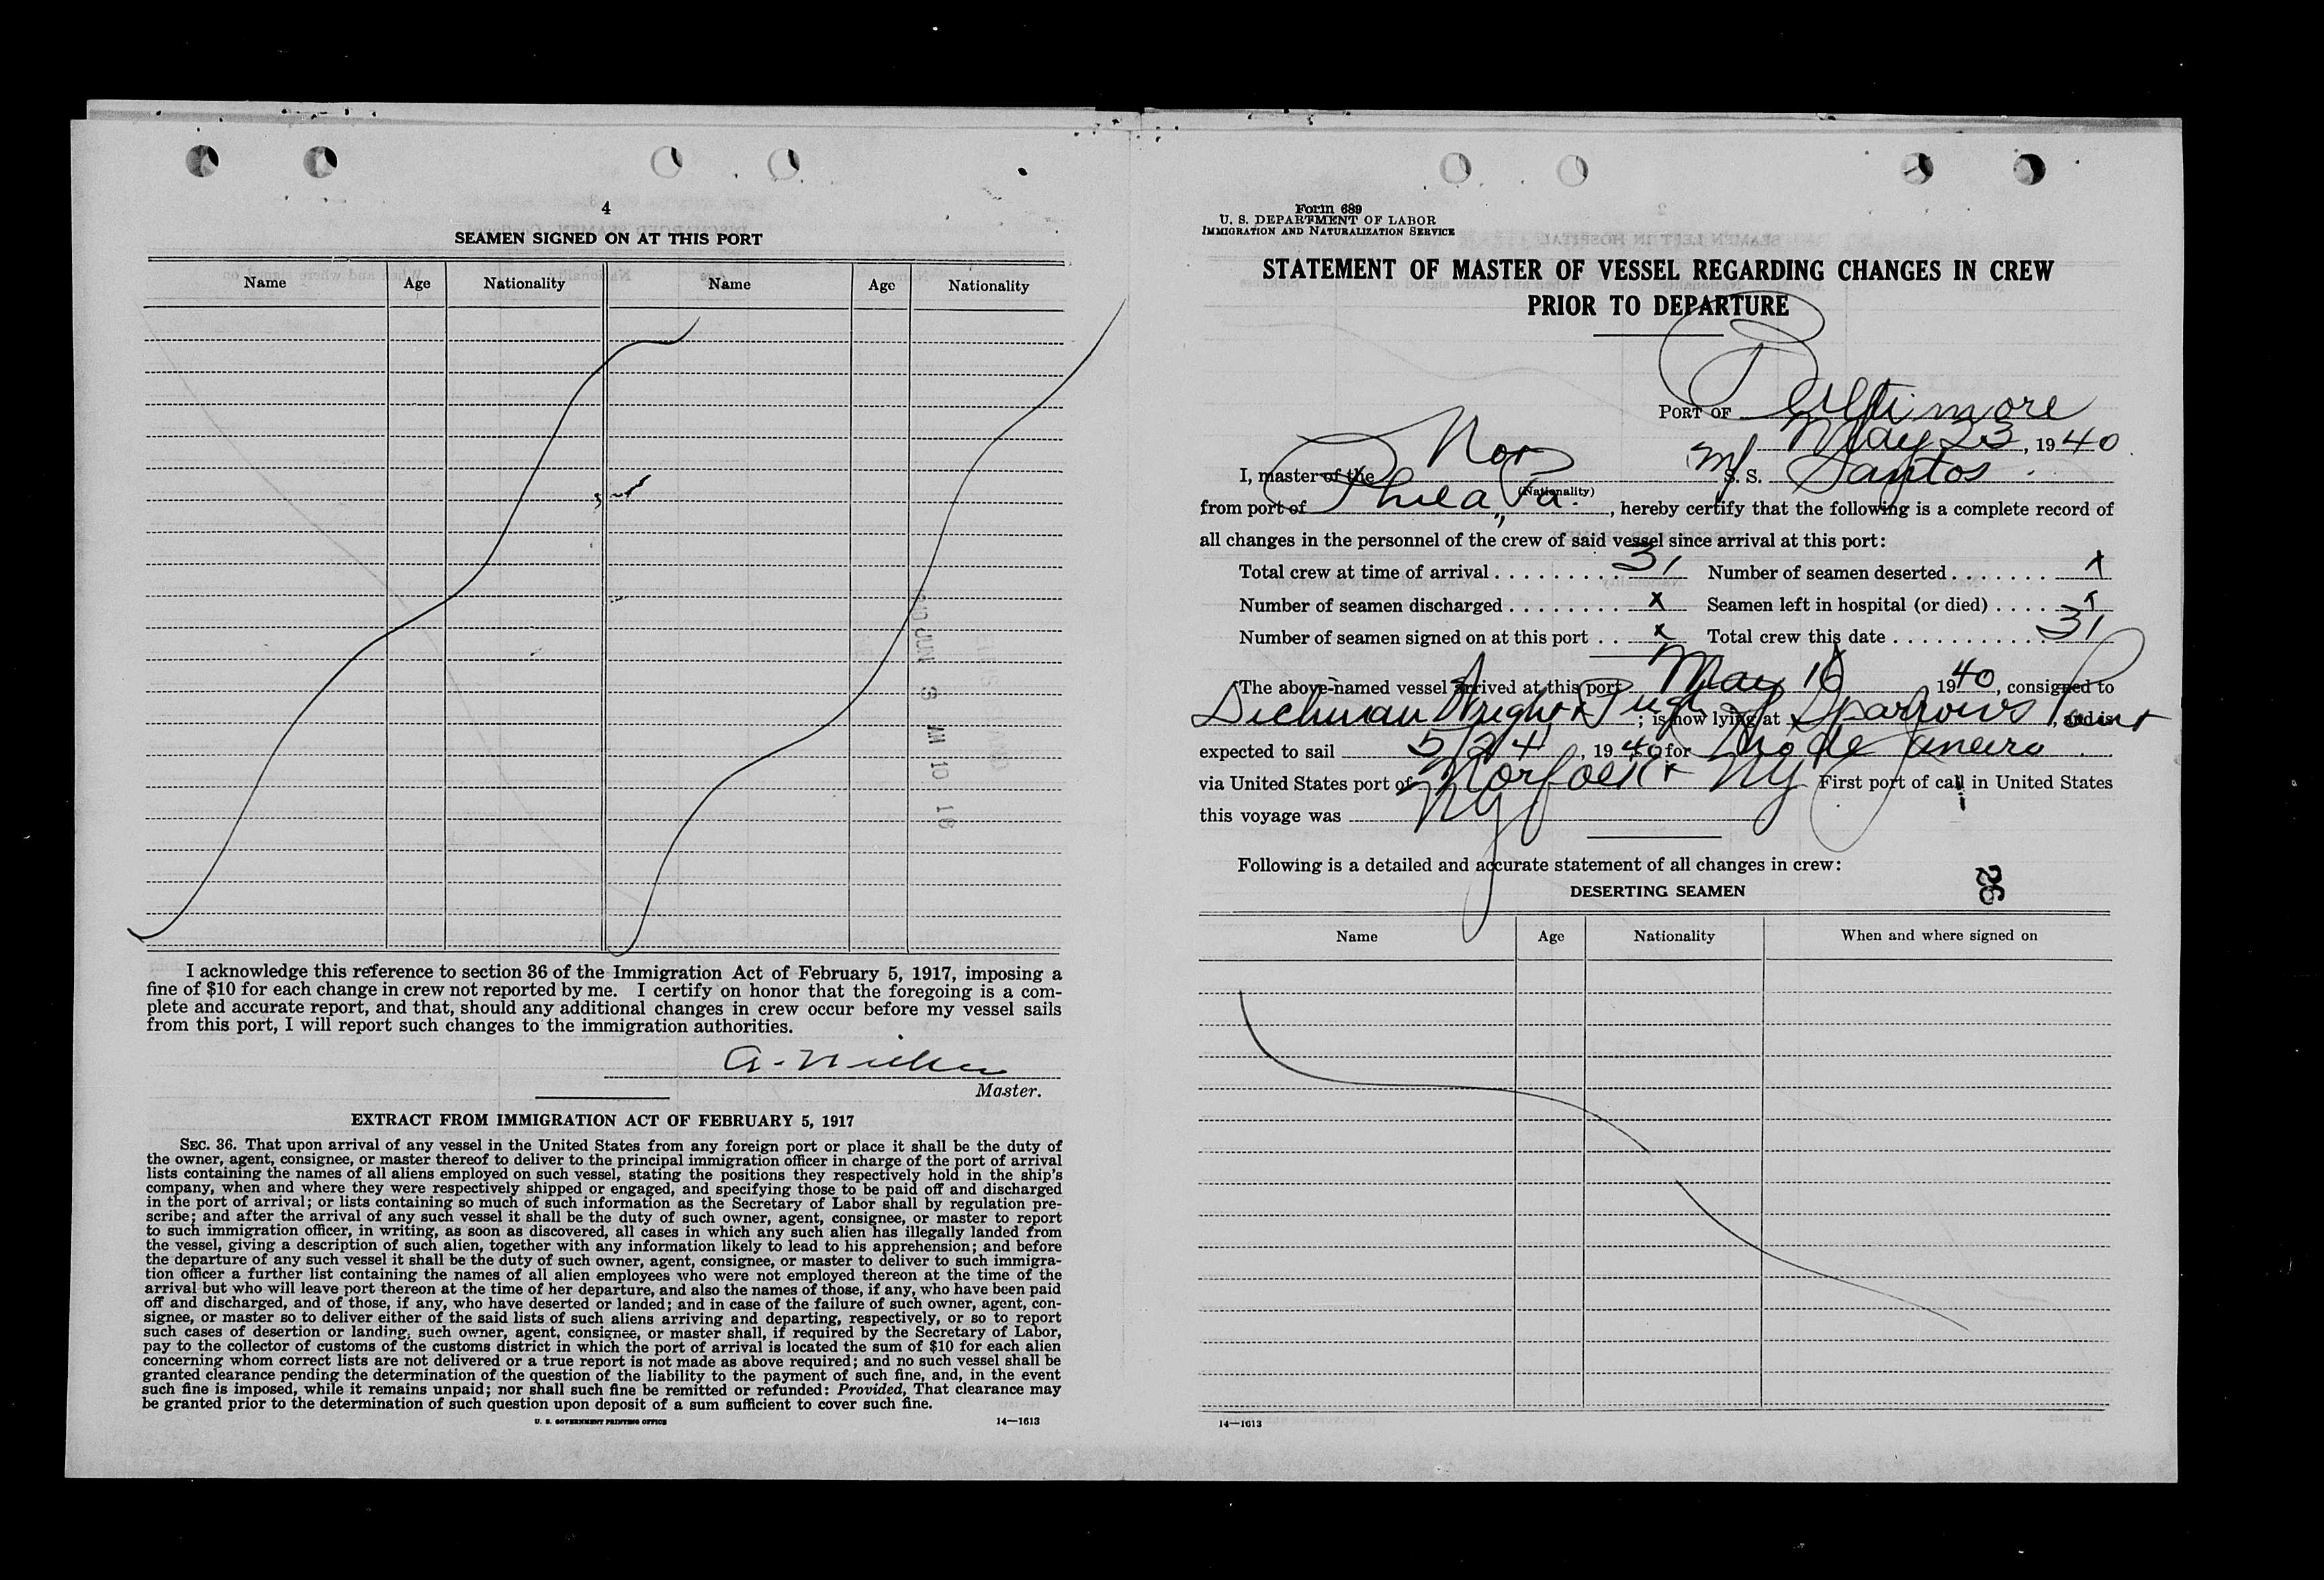 4
SEAMEN SIGNED ON AT THIS PORT
Name Age Nationality Name Age Nationality
JUN 3 AM 10 16
I acknowledge this reference to section 36 of the Immigration Act of February 5, 1917, imposing a
fine of $10 for each change in crew not reported by me. I certify on honor that the foregoing is a com-
plete and accurate report, and that, should any additional changes in crew occur before my vessel sails
from this port, I will report such changes to the immigration authorities.
Master.
EXTRACT FROM IMMIGRATION ACT OF FEBRUARY 5, 1917
SEC. 36. That upon arrival of any vessel in the United States from any foreign port or place it shall be the duty of
the owner, agent, consignee, or master thereof to deliver to the principal immigration officer in charge of the port of arrival
lists containing the names of all aliens employed on such vessel, stating the positions they respectively hold in the ship's
company, when and where they were respectively shipped or engaged, and specifying those to be paid off and discharged
in the port of arrival; or lists containing so much of such information as the Secretary of Labor shall by regulation pre-
scribe; and after the arrival of any such vessel it shall be the duty of such owner, agent, consignee, or master to report
to such immigration officer, in writing, as soon as discovered, all cases in which any such alien has illegally landed from
the vessel, giving a description of such alien, together with any information likely to lead to his apprehension; and before
the departure of any such vessel it shall be the duty of such owner, agent, consignee, or master to deliver to such immigra-
tion officer a further list containing the names of all alien employees who were not employed thereon at the time of the
arrival but who will leave port thereon at the time of her departure, and also the names of those, if any, who have been paid
off and discharged, and of those, if any, who have deserted or landed; and in case of the failure of such owner, agent, con-
signee, or master so to deliver either of the said lists of such aliens arriving and departing, respectively, or so to report
such cases of desertion or landing, such owner, agent, consignee, or master shall, if required by the Secretary of Labor,
pay to the collector of customs of the customs district in which the port of arrival is located the sum of $10 for each alien
concerning whom correct lists are not delivered or a true report is not made as above required; and no such vessel shall be
granted clearance pending the determination of the question of the liability to the payment of such fine, and, in the event
such fine is imposed, while it remains unpaid; nor shall such fine be remitted or refunded: Provided, That clearance may
be granted prior to the determination of such question upon deposit of a sum sufficient to cover such fine.
U. S. GOVERNMENT PRINTING OFFICE 14—1613
Form 689
U. S. DEPARTMENT OF LABOR
IMMIGRATION AND NATURALIZATION SERVICE
STATEMENT OF MASTER OF VESSEL REGARDING CHANGES IN CREW
PRIOR TO DEPARTURE
PORT OF Baltimore
May 23, 1940
I, master of the Nor (Nationality) M/ S. S. Santos
from port of Phila, Pa., hereby certify that the following is a complete record of
all changes in the personnel of the crew of said vessel since arrival at this port:
Total crew at time of arrival 31 Number of seamen deserted x
Number of seamen discharged x Seamen left in hospital (or died) x
Number of seamen signed on at this port x Total crew this date 31
The above-named vessel arrived at this port May 16 1940, consigned to
Dichman Wright & Pugh; is now lying at Sparrows Point, and is
expected to sail 5/24, 1940 for Rio de Janeiro
via United States port of Norfolk & NY First port of call in United States
this voyage was NY
Following is a detailed and accurate statement of all changes in crew:
26
DESERTING SEAMEN
Name Age Nationality When and where signed on
14—1613